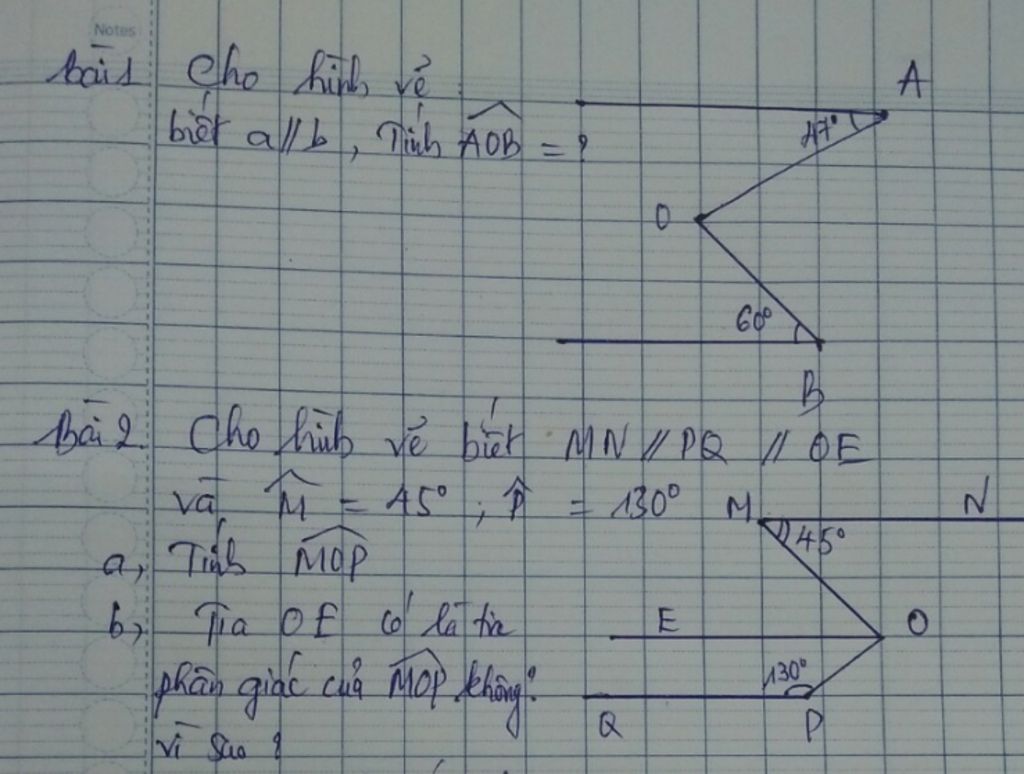 Notes
Bài 1 Cho hình vẽ
biết a // b, Tính AOB = ?
A
47°
O
60°
B
Bài 2 Cho hình vẽ biết MN // PQ // OE
và M = 45° ; P = 130°
M N
45°
a, Tính MOP
b, Tia OE có là tia
E O
phân giác của MOP không?
130°
Q P
vì sao ?